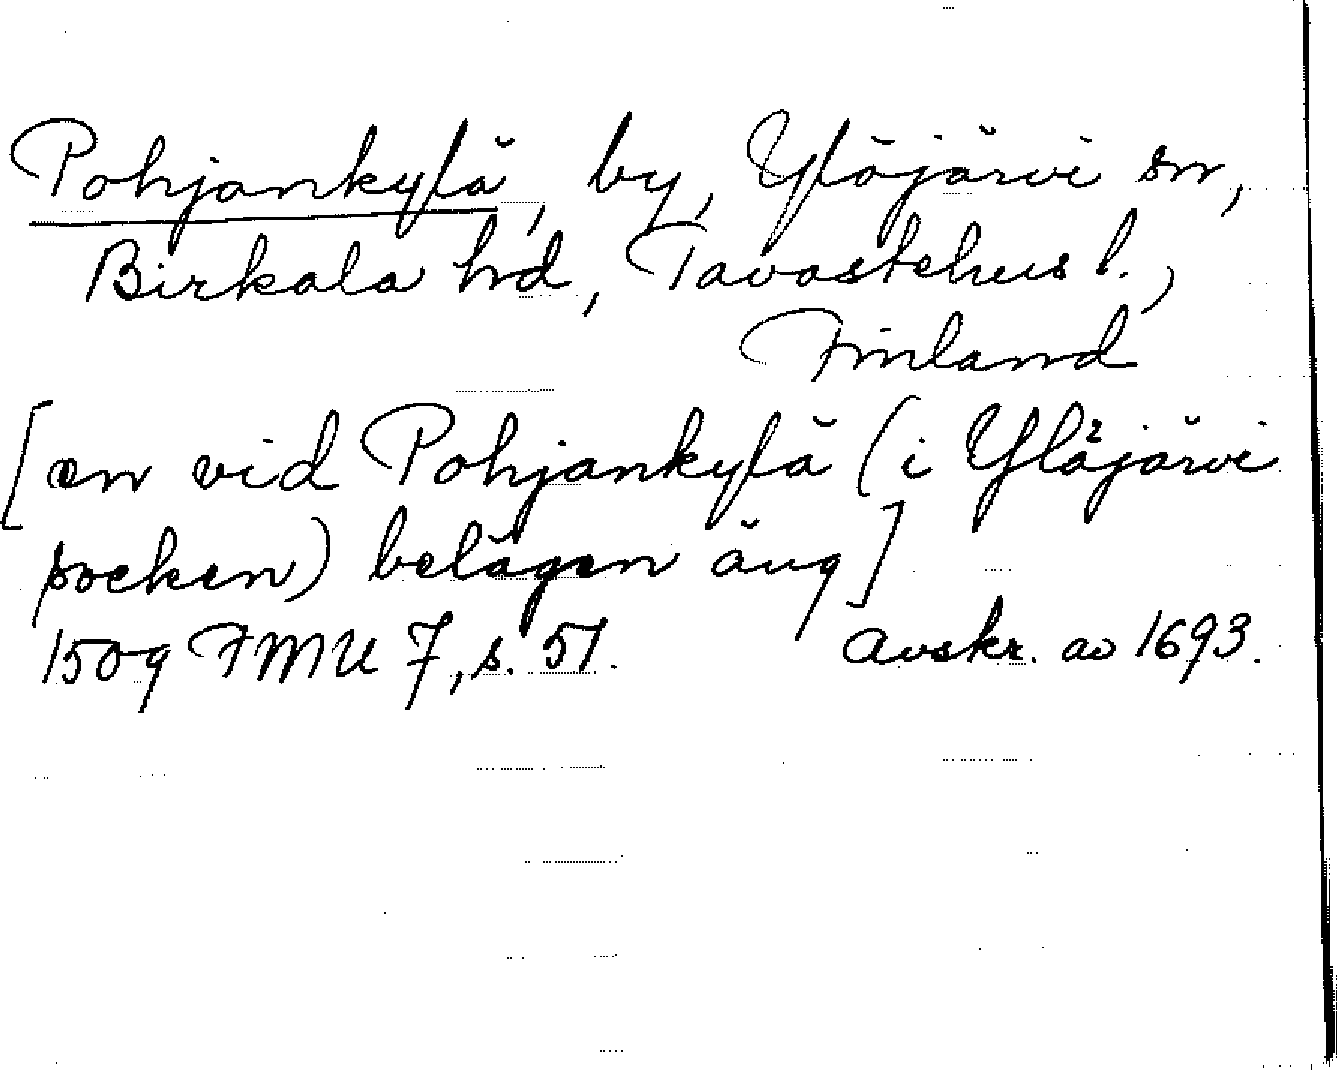 Pohjankylä, by, Ylöjärvi sn,
Birkala hrd, Tavastehus l.,
Finland
[en vid Pohjankylä (i Ylöjärvi
socken) belägen äng]
1509 FMU 7, s. 51. Avskr. av 1693.